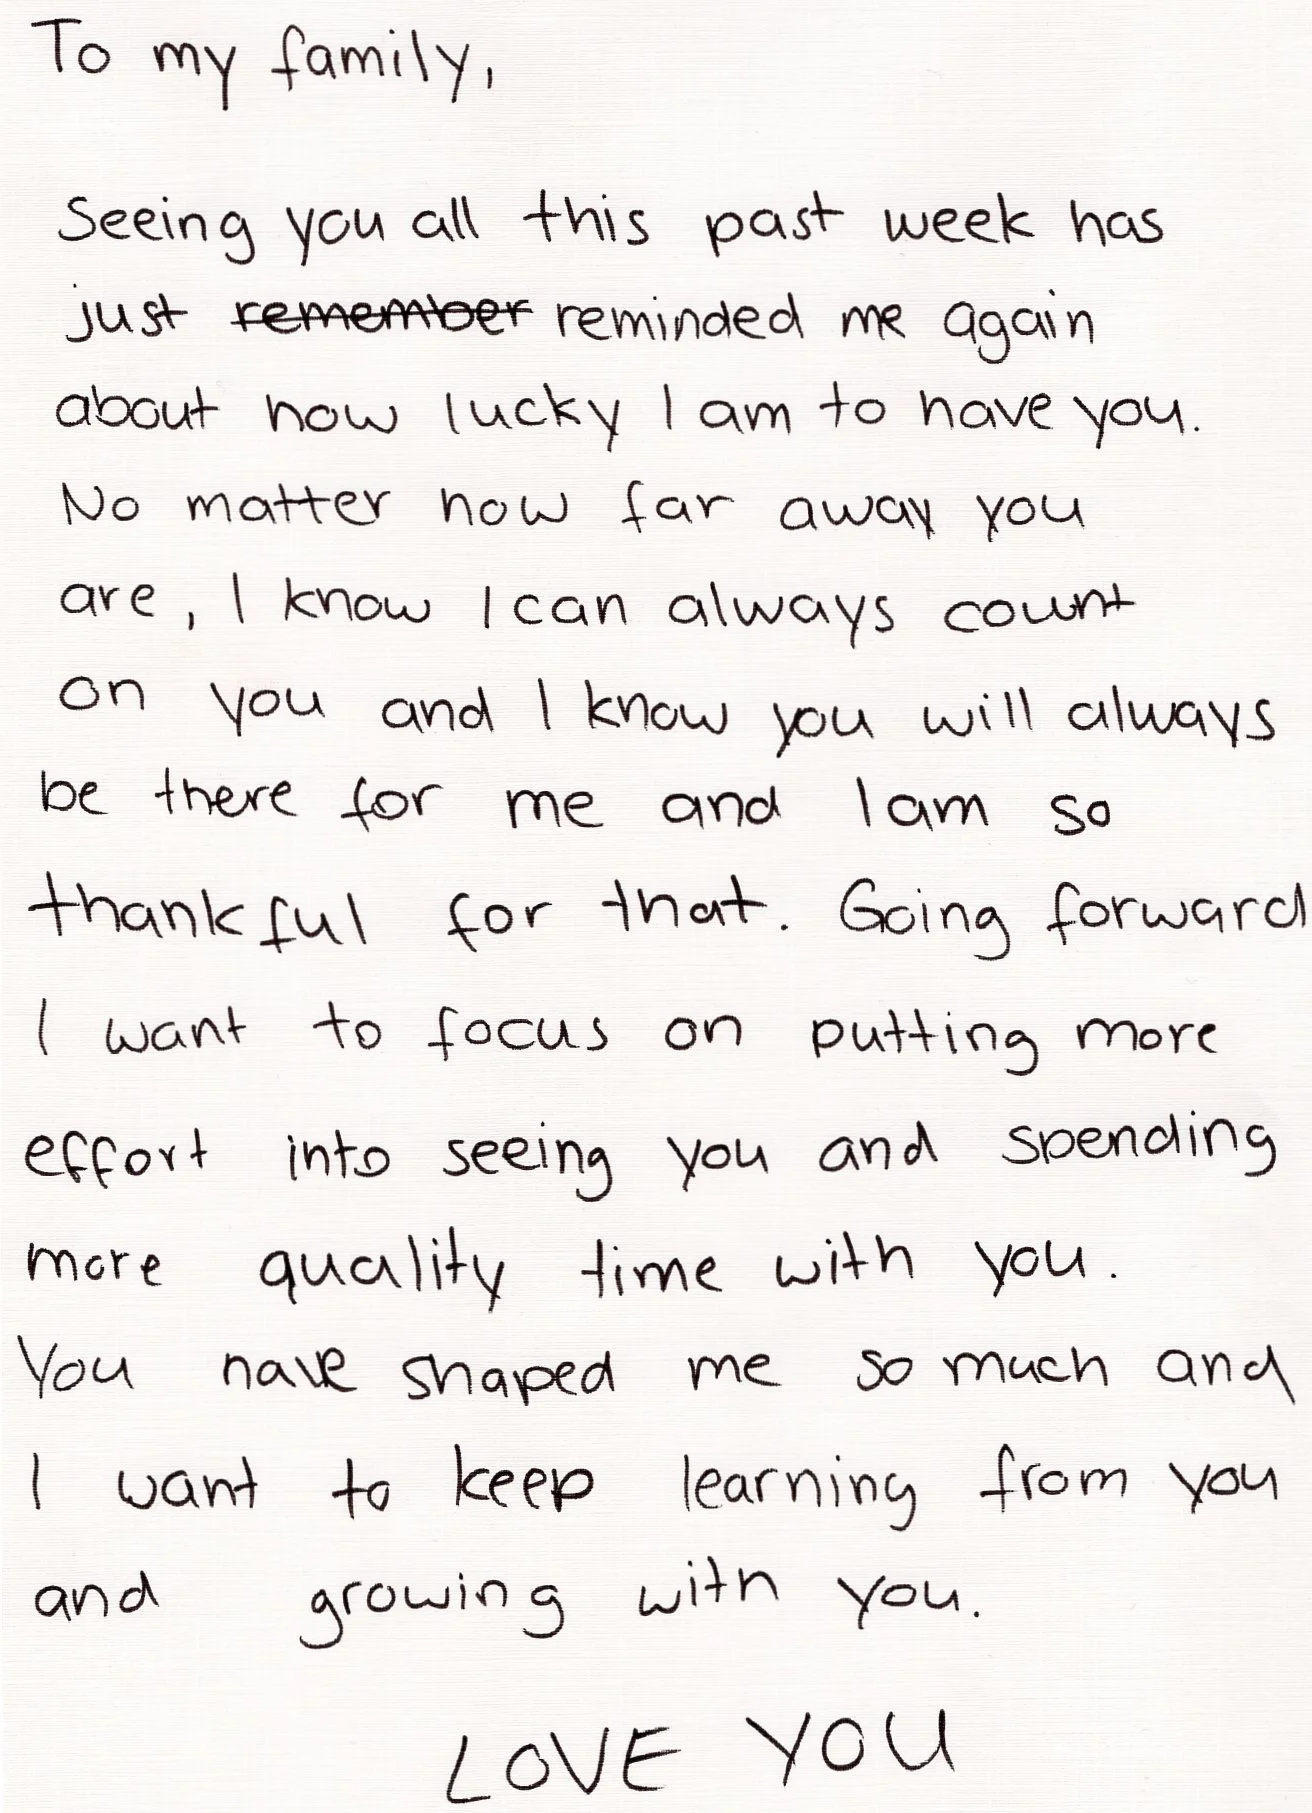 To my family,
Seeing you all this past week has
just ~~remember~~ reminded me again
about how lucky I am to have you.
No matter how far away you
are, I know I can always count
on you and I know you will always
be there for me and I am so
thankful for that. Going forward
I want to focus on putting more
effort into seeing you and spending
more quality time with you.
You have shaped me so much and
I want to keep learning from you
and growing with you.
LOVE YOU